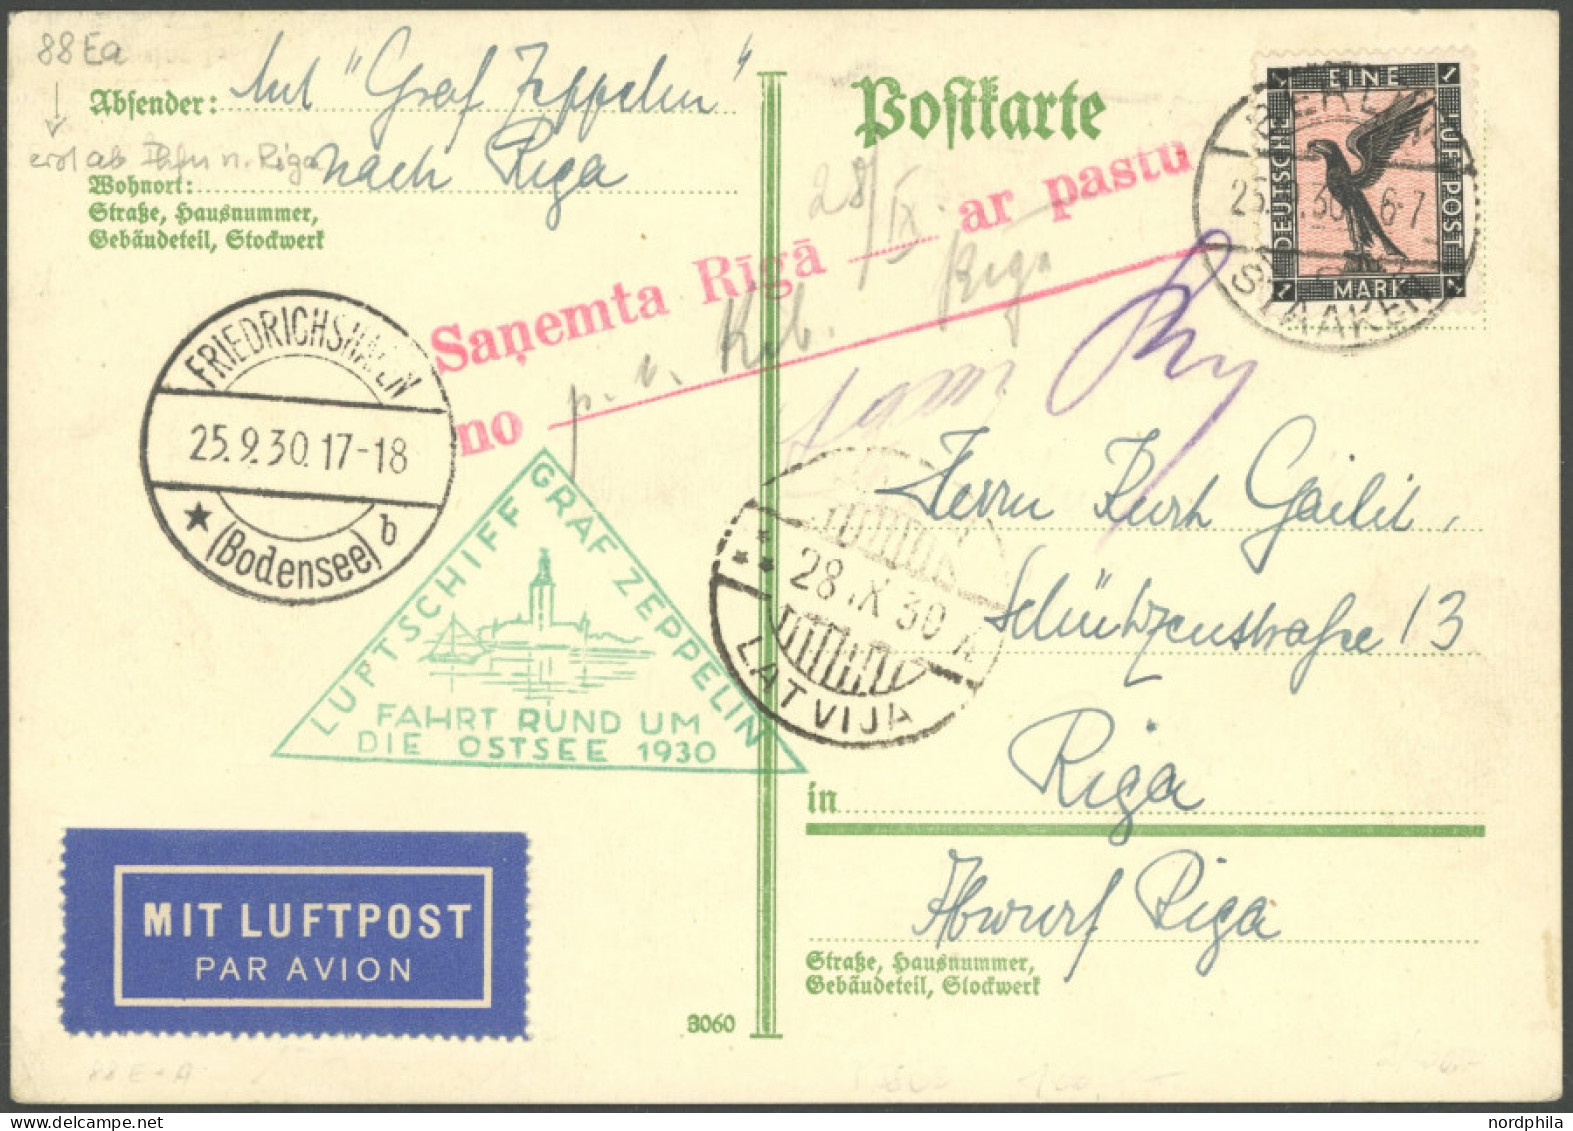 88 Ea
Absender: Mit "Graf Zeppelin"
nach Riga
Wohnort:
Straße, Hausnummer,
Gebäudeteil, Stockwerk
Postkarte
EINE
MARK
DEUTSCHE LUFTPOST
1 1
1 1
BERLIN
25. 30 6-7
STAAKEN
Saņemta Rīgā 28/IX ar pastu
no p. n. Riga
FRIEDRICHSHAFEN
25.9.30.17-18
(Bodensee) b
LUFTSCHIFF GRAF ZEPPELIN
FAHRT RUND UM
DIE OSTSEE 1930
28.IX 30
LATVIJA
Herrn Kurt Gailit,
Schützenstraße 13
in Riga
Abwurf Riga
Straße, Hausnummer,
Gebäudeteil, Stockwerk
MIT LUFTPOST
PAR AVION
3060
88 E-A
nordphila